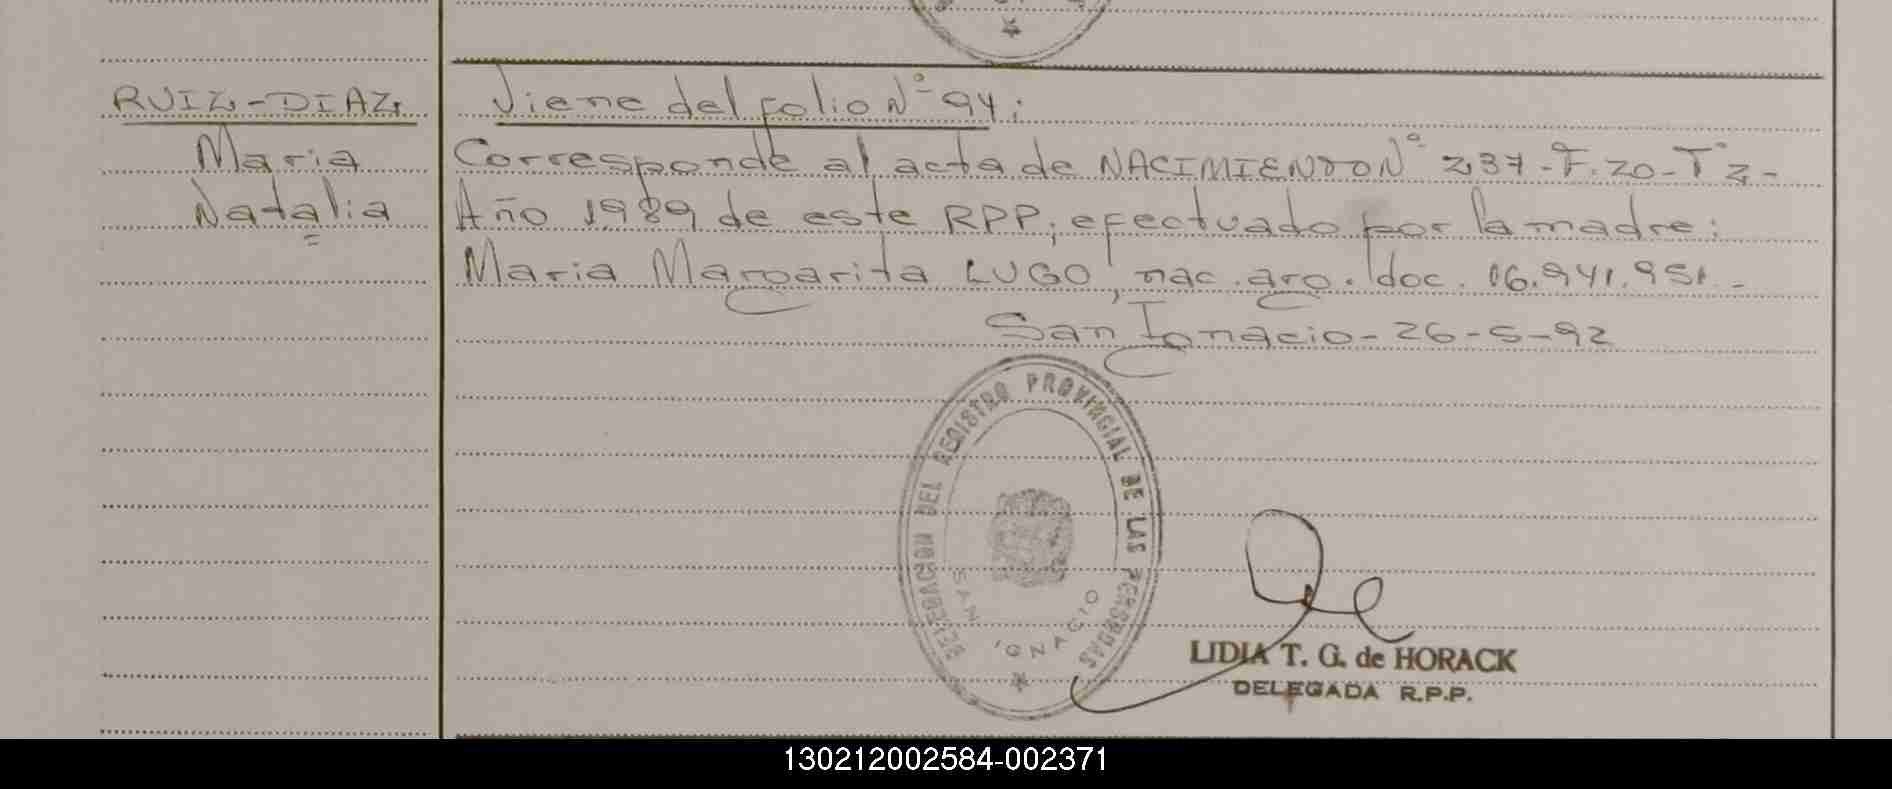 RUIZ-DIAZ
Maria
Natalia
Viene del folio Nº 94:
Corresponde al acta de NACIMIENTO Nº 237-F.20-Tº2-
Año 1989 de este RPP, efectuado por la madre:
Maria Margarita LUGO, nac. arg. doc. 16.941.951.-
San Ignacio-26-5-92
DELEGACION DEL REGISTRO PROVINCIAL DE LAS PERSONAS
SAN IGNACIO
LIDIA T. G. de HORACK
DELEGADA R.P.P.
130212002584-002371